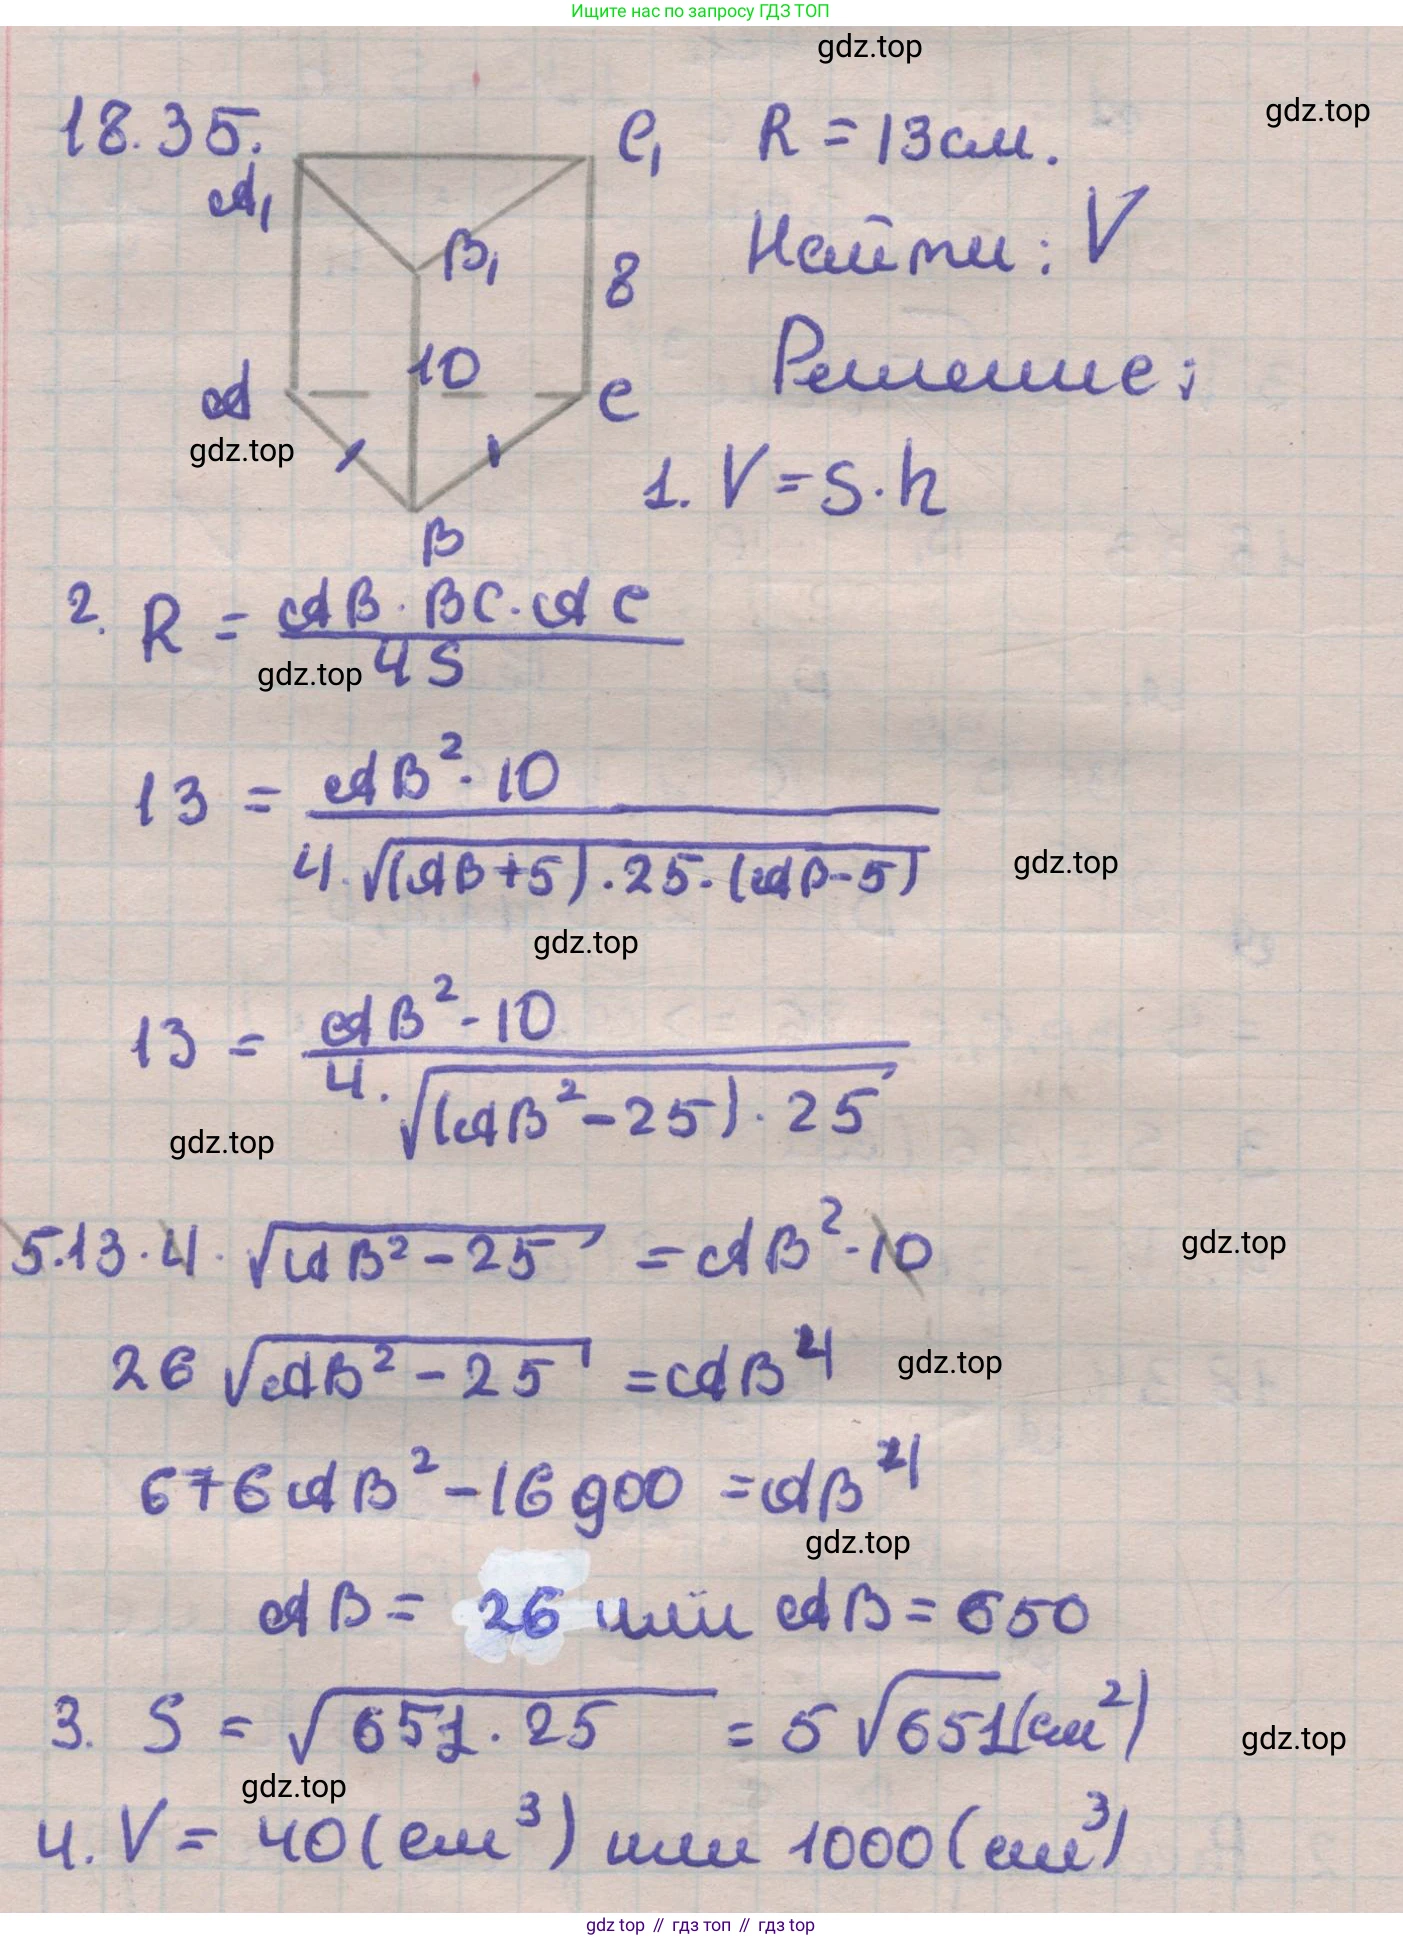 Ищите нас по запросу ГДЗ ТОП
gdz.top
18.35.
gdz.top
A₁
C₁
R = 13 см.
B₁
8
Найти: V
10
A
C
Решение:
gdz.top
B
1. V = S · h
2. R = AB · BC · AC / 4S
gdz.top
13 = AB² · 10 / 4 · √(AB+5) · 25 · (AB-5)
gdz.top
gdz.top
13 = AB² · 10 / 4 · √(AB² - 25) · 25
gdz.top
5·13·4 · √AB² - 25 = AB² · 10
gdz.top
26 √AB² - 25 = AB²
gdz.top
676 AB² - 16900 = AB⁴
gdz.top
AB = 26 или AB = 650
3. S = √651 · 25 = 5 √651 (см²)
gdz.top
gdz.top
4. V = 40 (см³) или 1000 (см³)
gdz top // гдз топ // gdz top